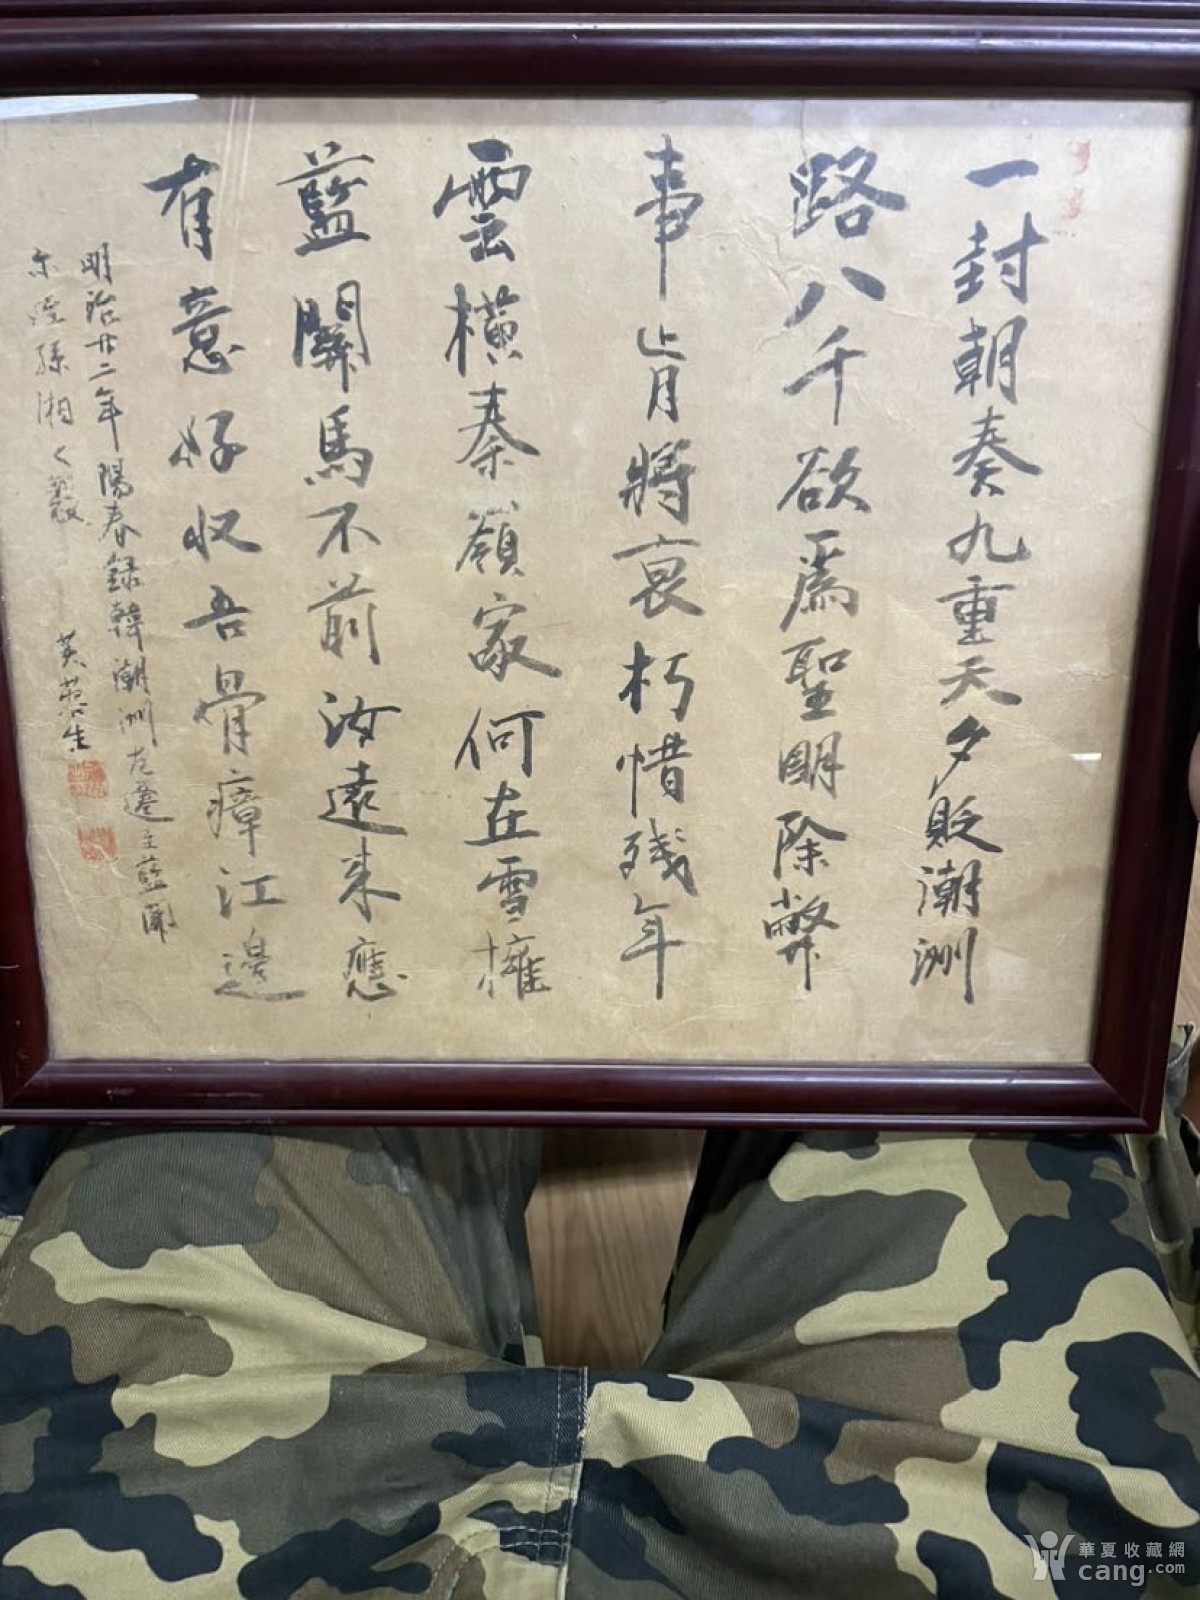 一封朝奏九重天夕貶潮洲
路八千欲為聖明除弊
事肯將衰朽惜残年
雲橫秦嶺家何在雪擁
藍關馬不前汝遠来應
有意好収吾骨瘴江邊
明治廿二年陽春録韓潮洲左遷至藍関
示姪孫湘
芙蓉生
華夏收藏網
cang.com